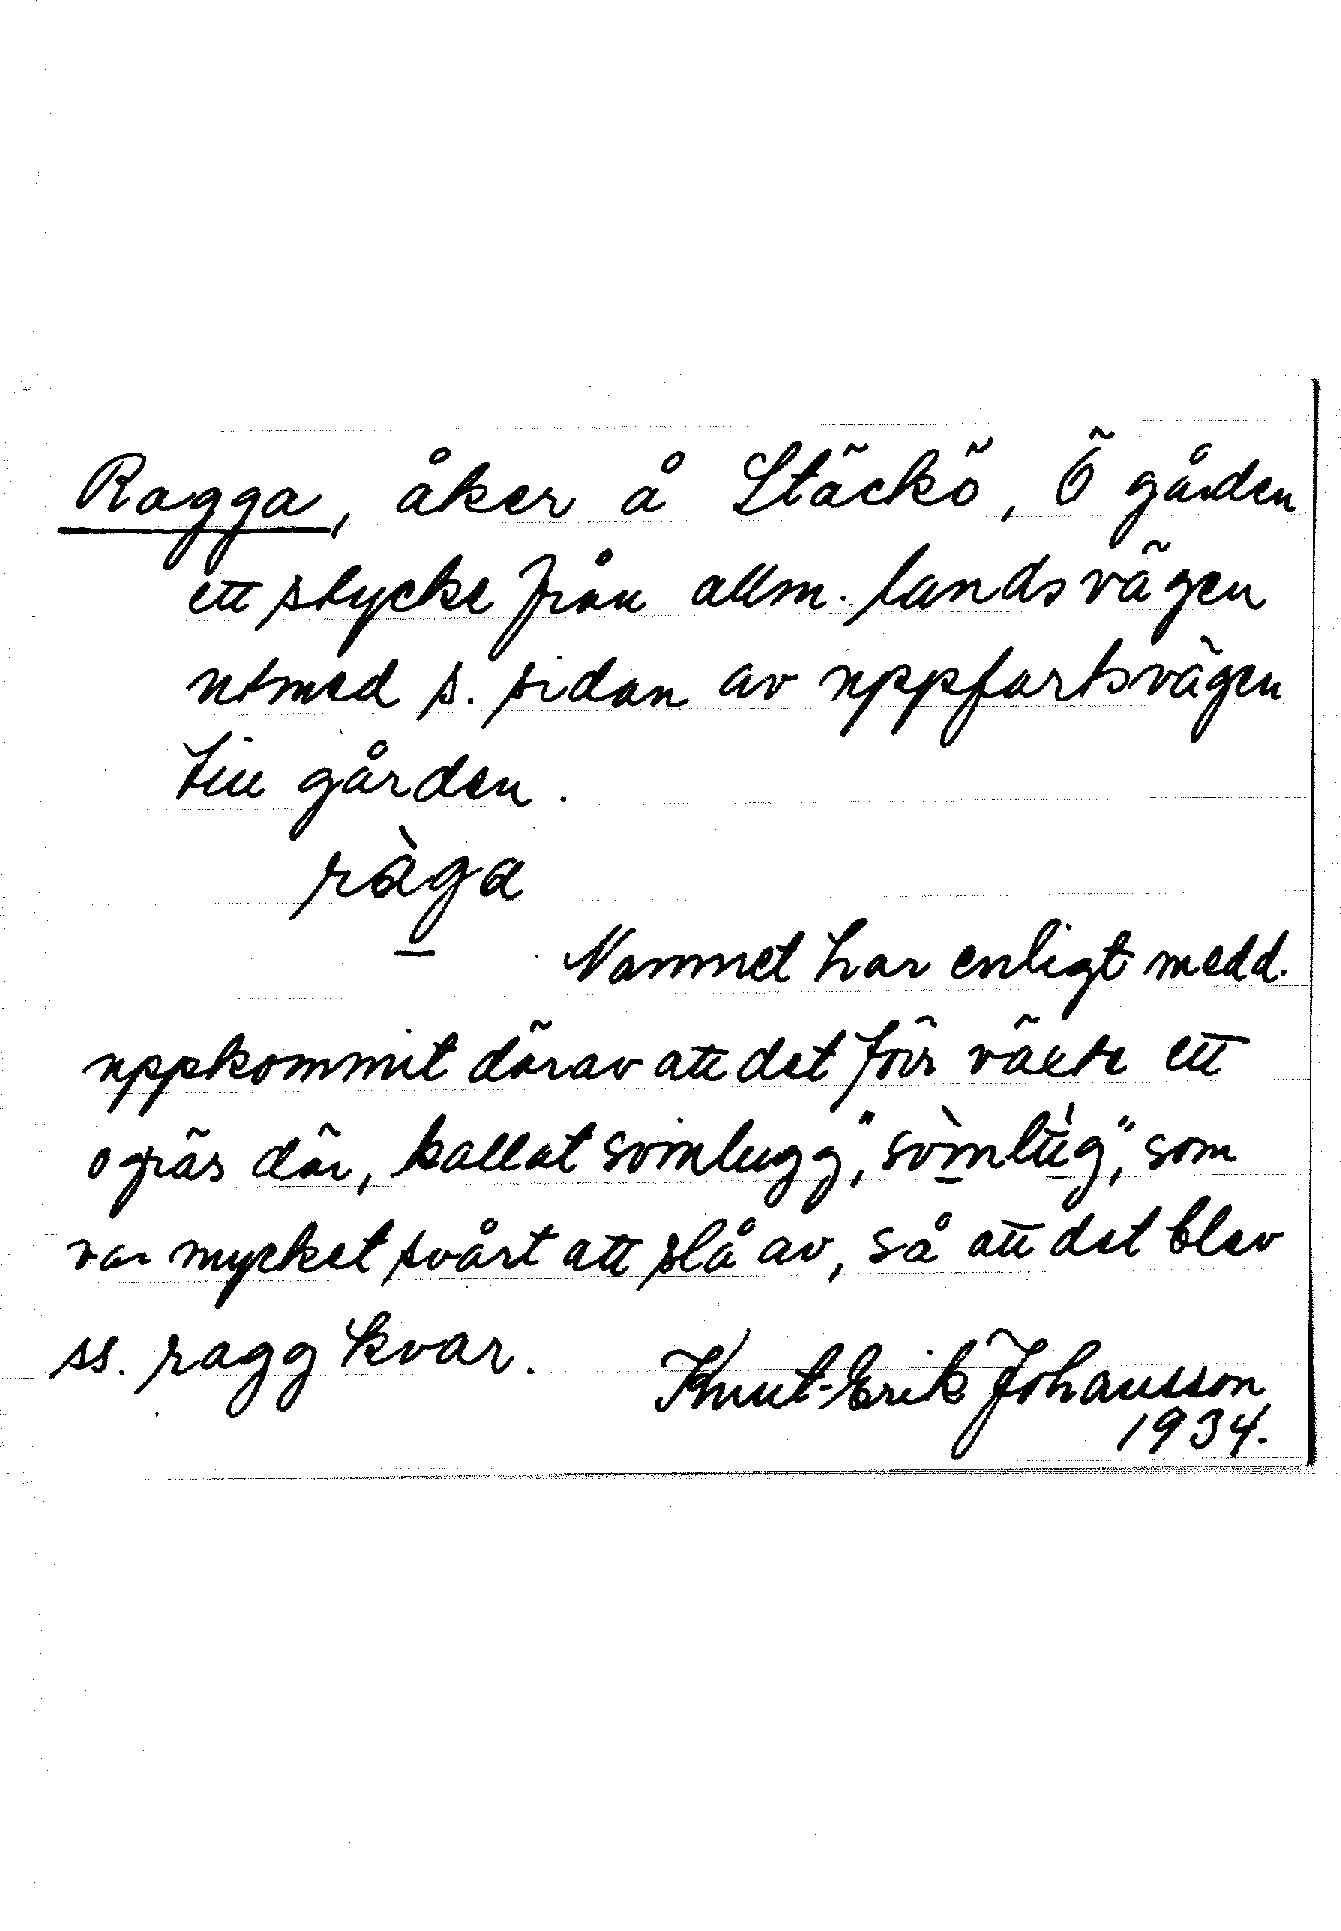 Ragga, åker å Stäckö, Ö gården
ett stycke från allm. landsvägen
utmed s. sidan av uppfartsvägen
till gården.
ràga
Namnet har enligt medd.
uppkommit därav att det förr växte ett
ogräs där, kallat sömlugg", sömlùg", som
var mycket svårt att slå av, så att det blev
ss. ragg kvar.
Knut-Erik Johansson
1934.